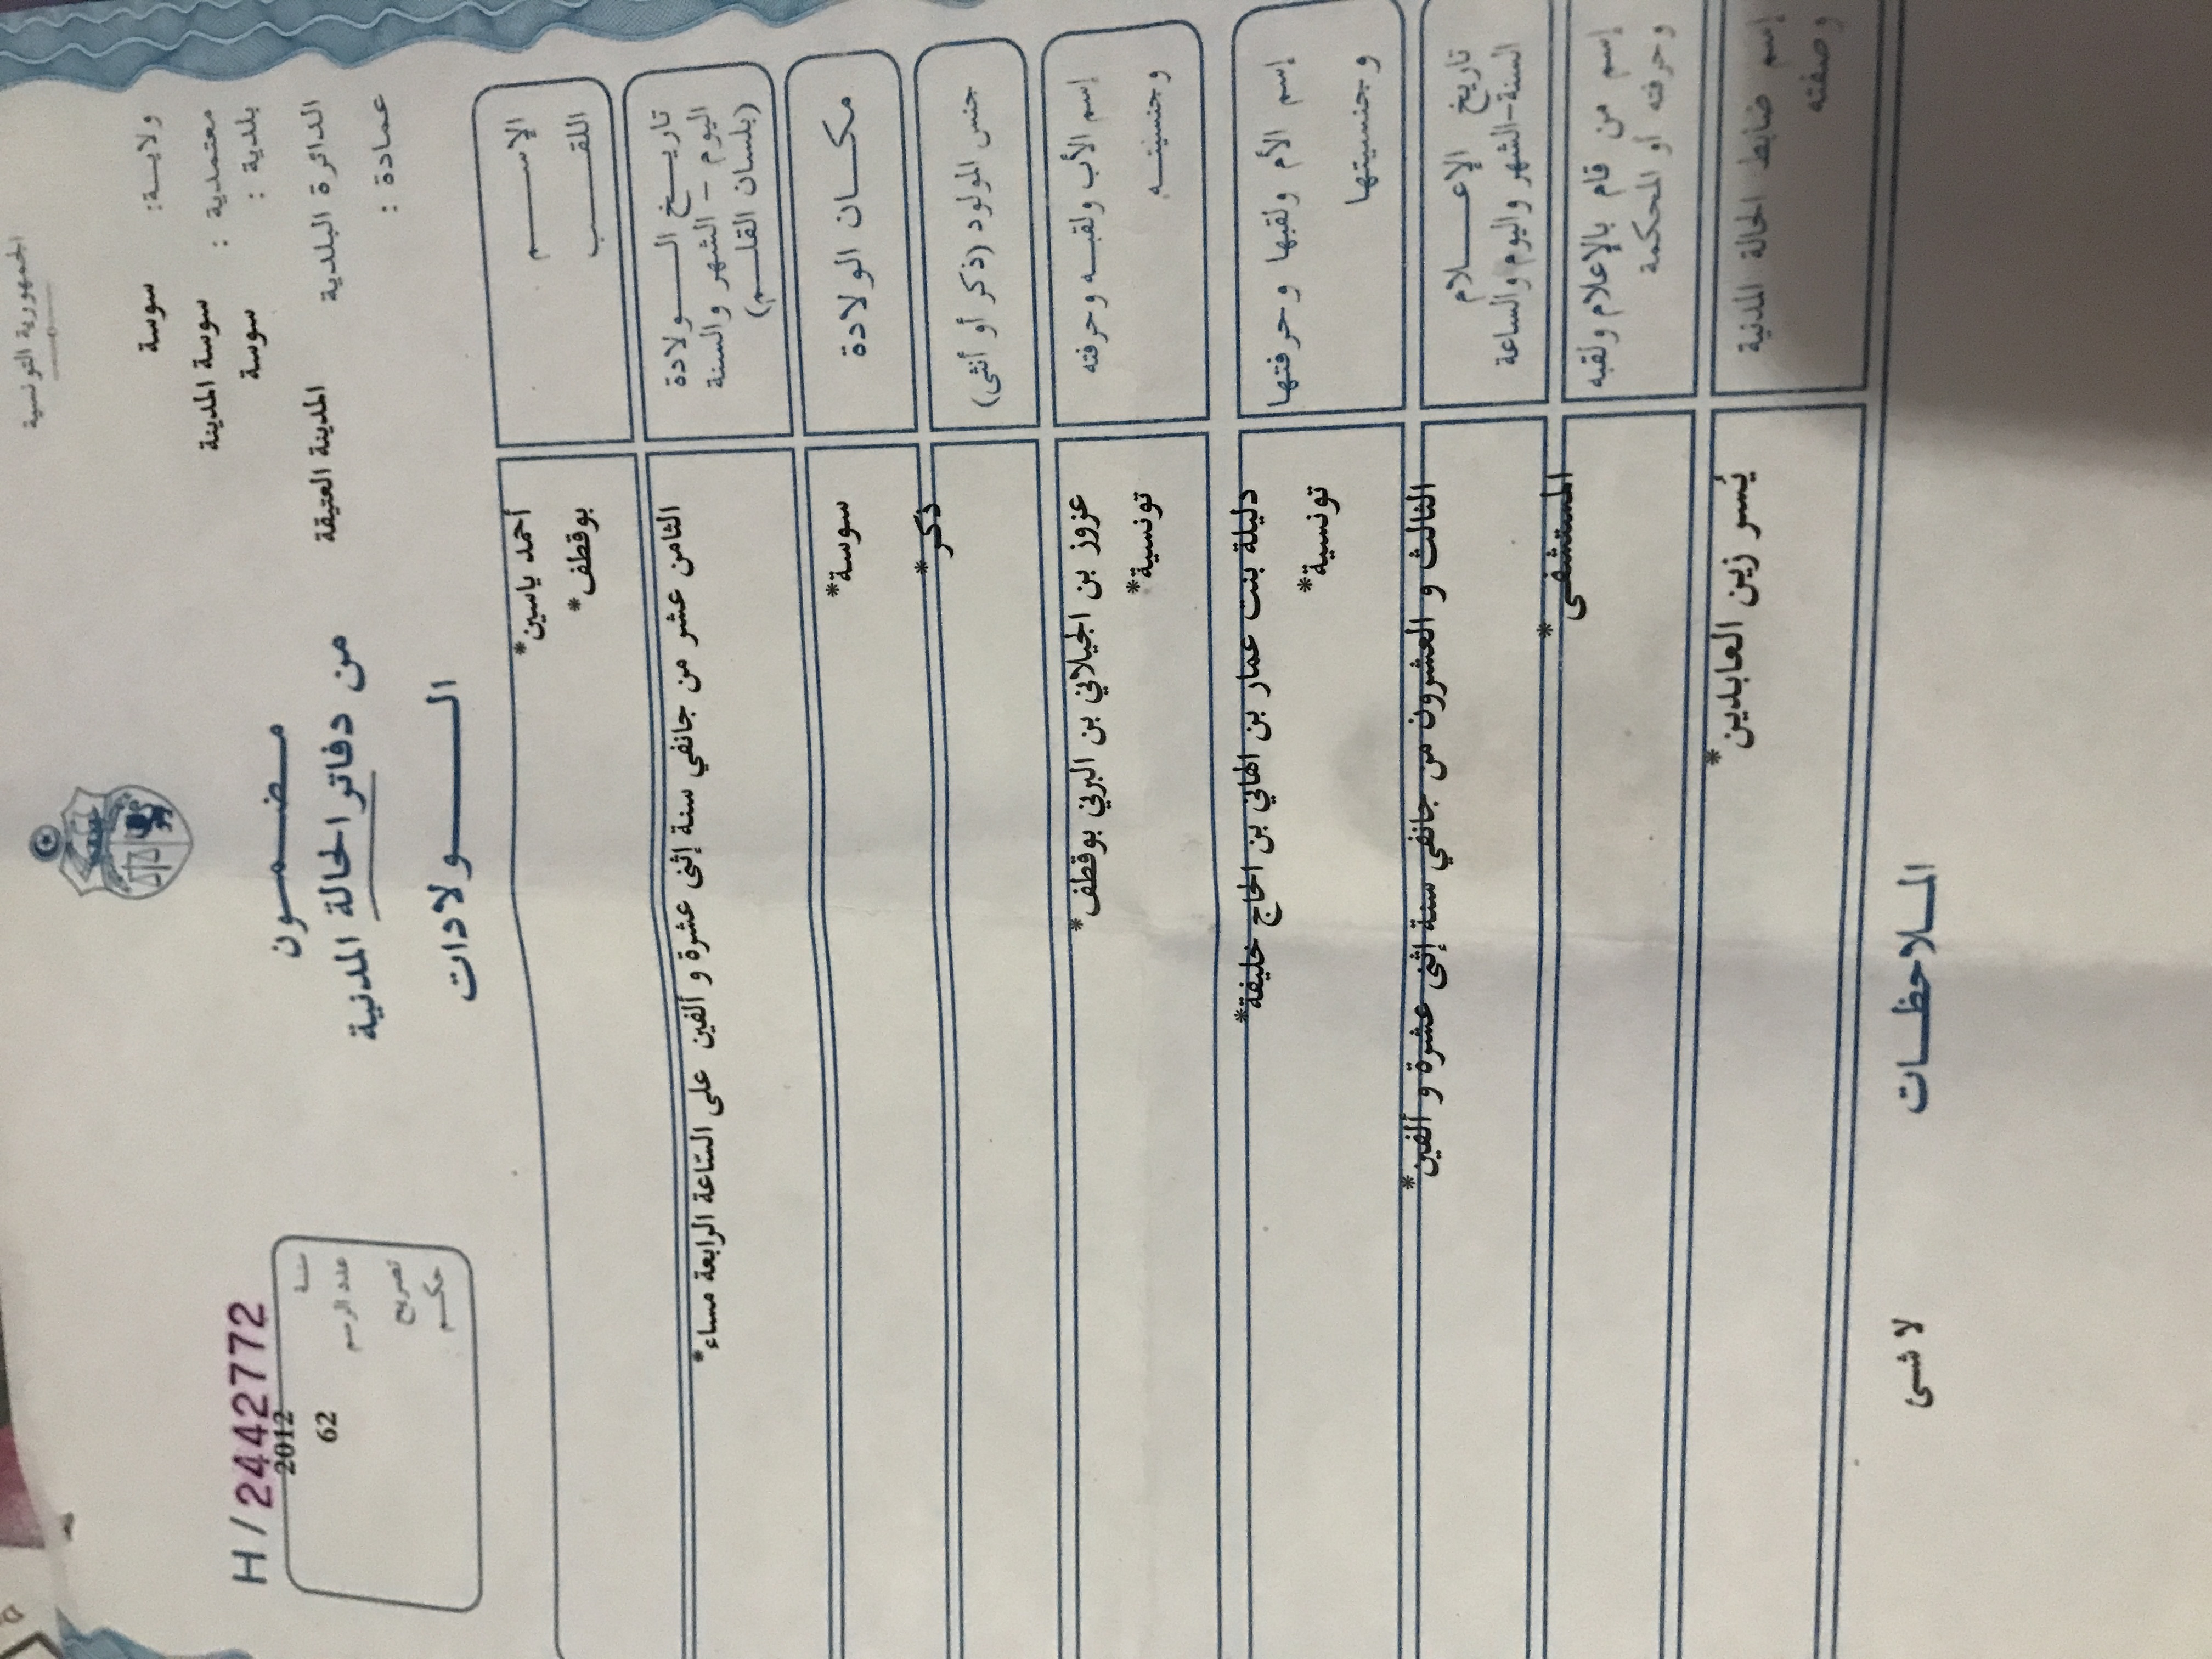 الجمهورية التونسية
ولايــة: سوسة
معتمدية : سوسة المدينة
بلدية : سوسة
الدائرة البلدية المدينة العتيقة
عمادة :
مـضـمــون
من دفاتر الحالة المدنية
الــولادات
H / 24442772
2012
عدد الرسم 62
تصريح
حكـم
الإســـم أحمد ياسين*
اللقــب بوقطف*
تاريــخ الــولادة
اليوم - الشهر والسنة
(بلسان القلـم)
الثامن عشر من جانفي سنة إثنى عشرة و ألفين على السّاعة الرابعة مساء*
مكــان الولادة سوسة*
جنس المولود (ذكر أو أنثى) ذكر*
إسم الأب ولقبـه وحرفته عزوز بن الجيلاني بن البرني بوقطف*
وجنسيتـه تونسية*
إسم الأم ولقبها وحرفتها دليلة بنت عمار بن الهاني بن الحاج خليفة*
وجنسيتها تونسية*
تاريخ الإعــلام
السنة-الشهر واليوم والساعة
الثالث و العشرون من جانفي سنة إثنى عشرة و ألفين*
إسم من قام بالإعلام ولقبه
وحرفته أو المحكمة
المستشفى*
إسم ضابط الحالة المدنية
وصفته
يُسر زين العابدين*
المـلاحظــات
لا شىء